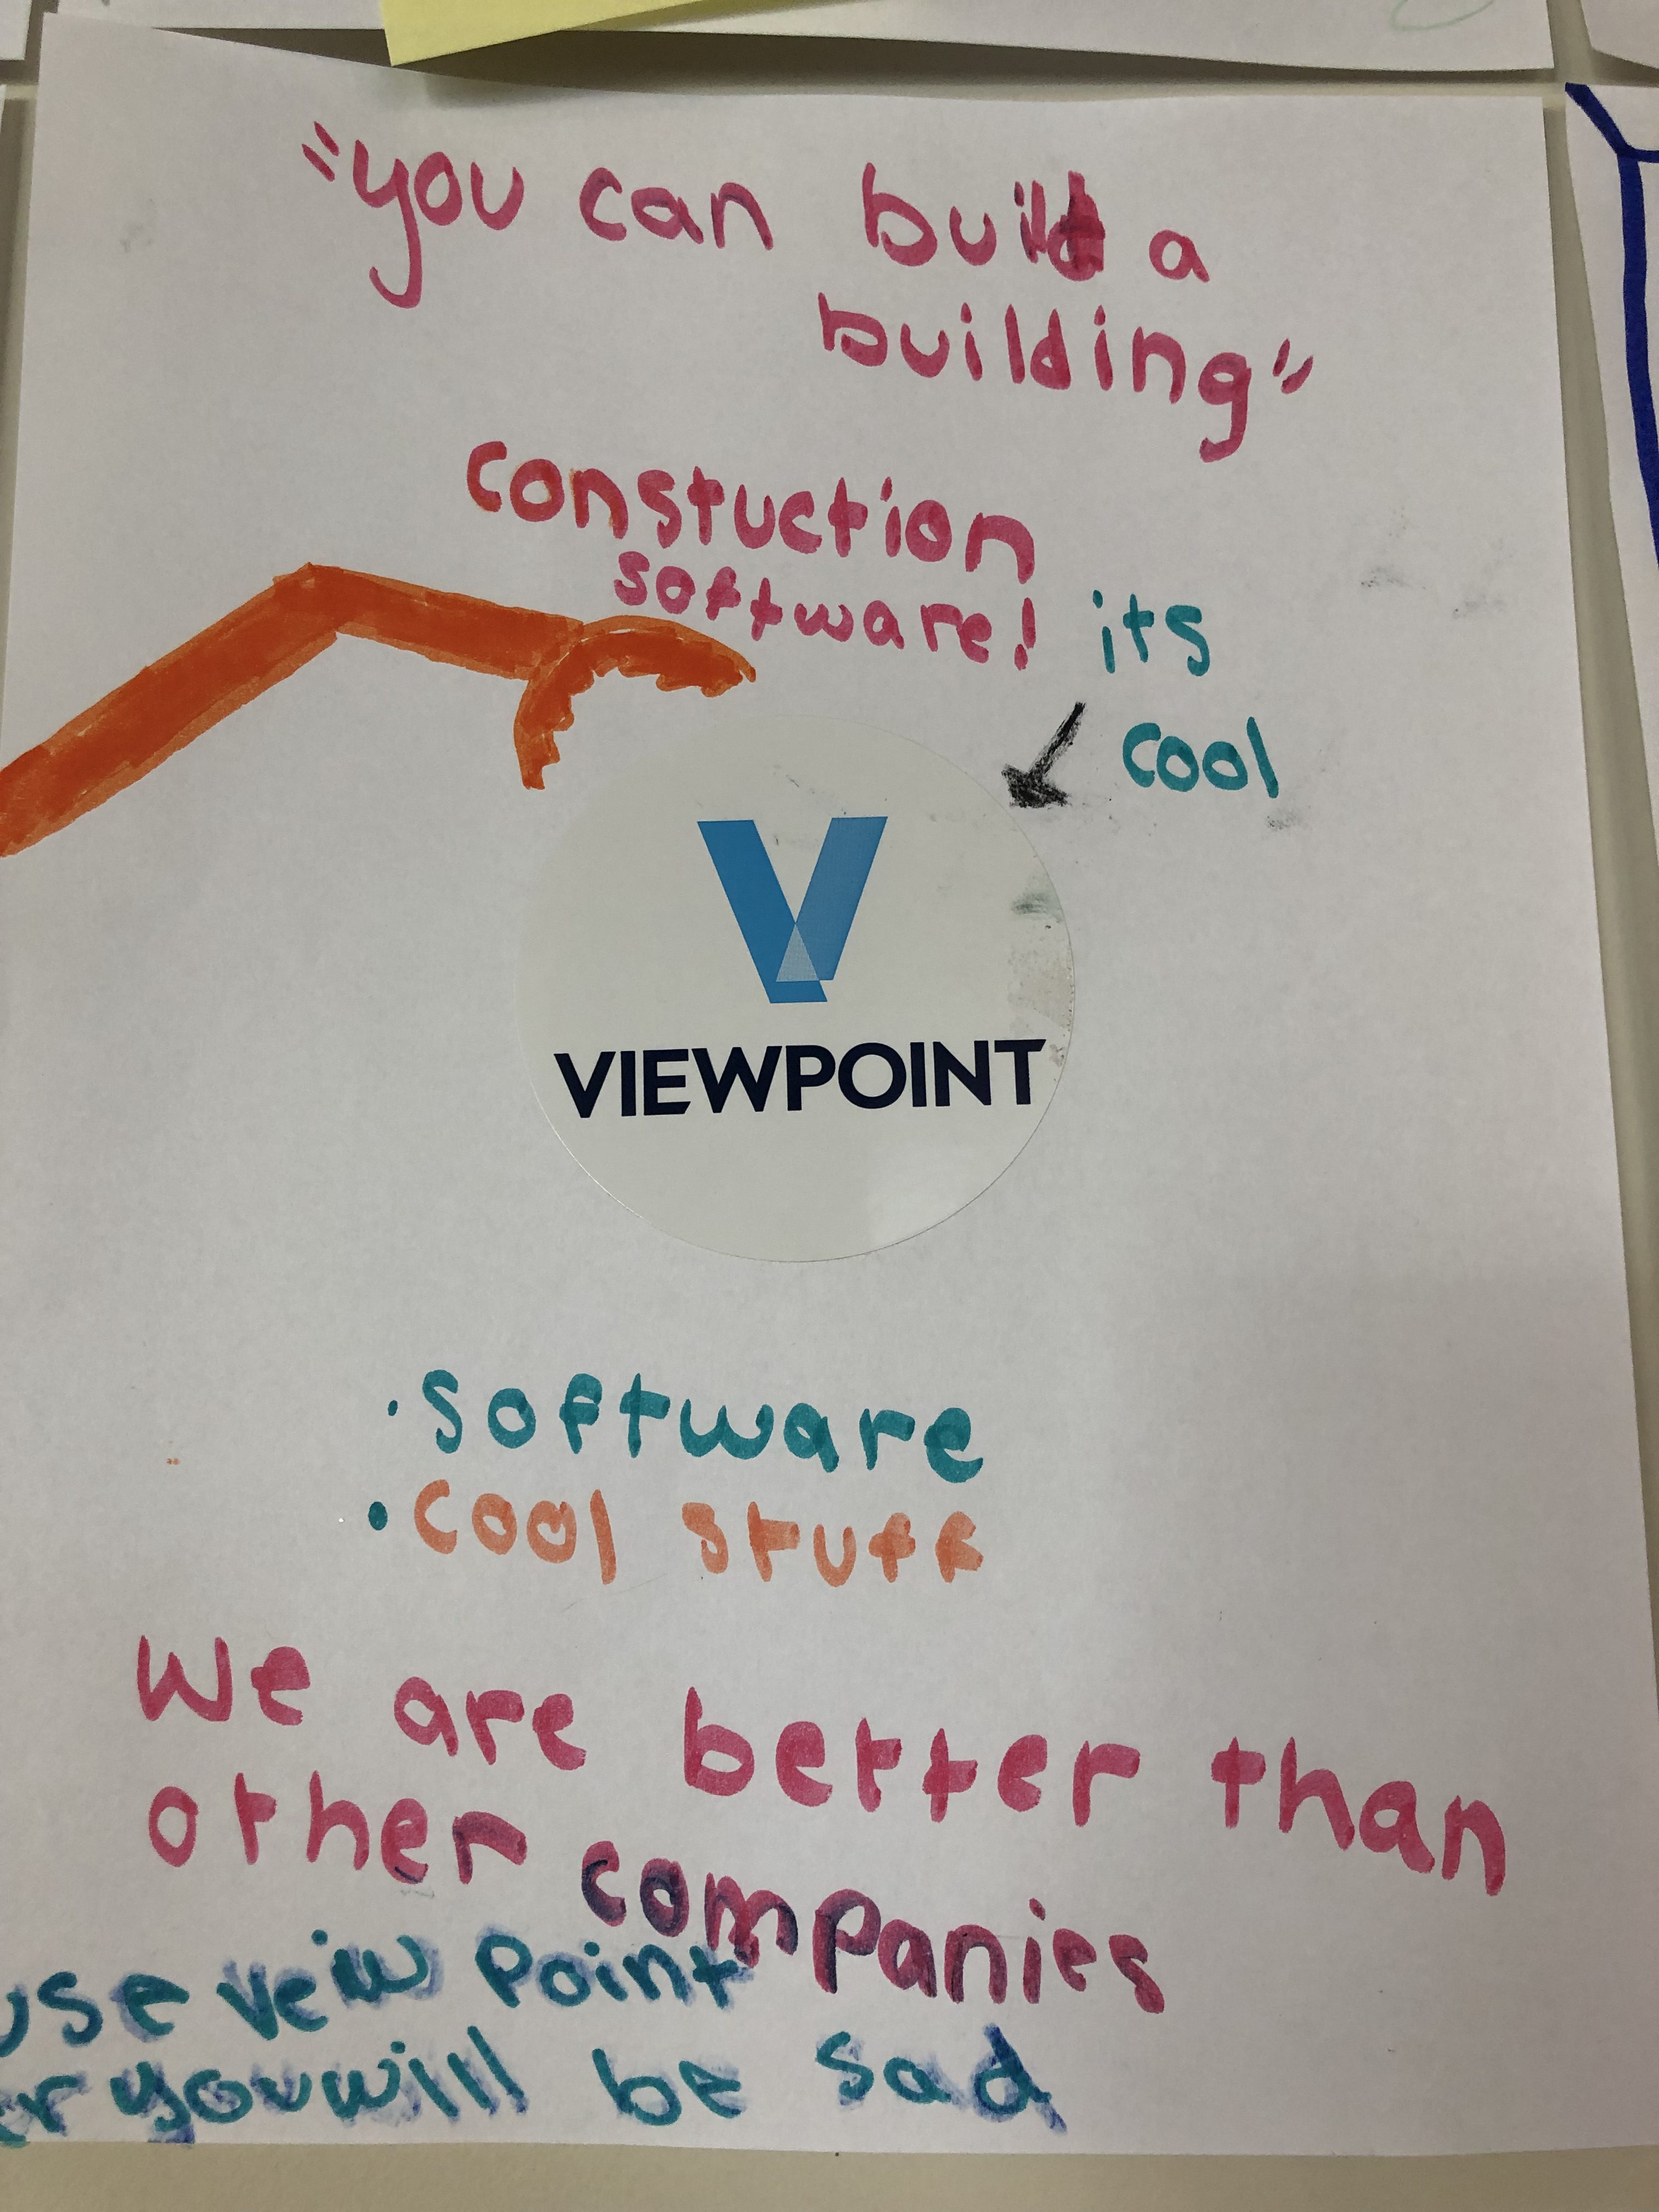 "you can build a
building"
constuction
software! its
cool
VIEWPOINT
• software
• cool stuff
we are better than
other companies
use veiw point
or you will be sad